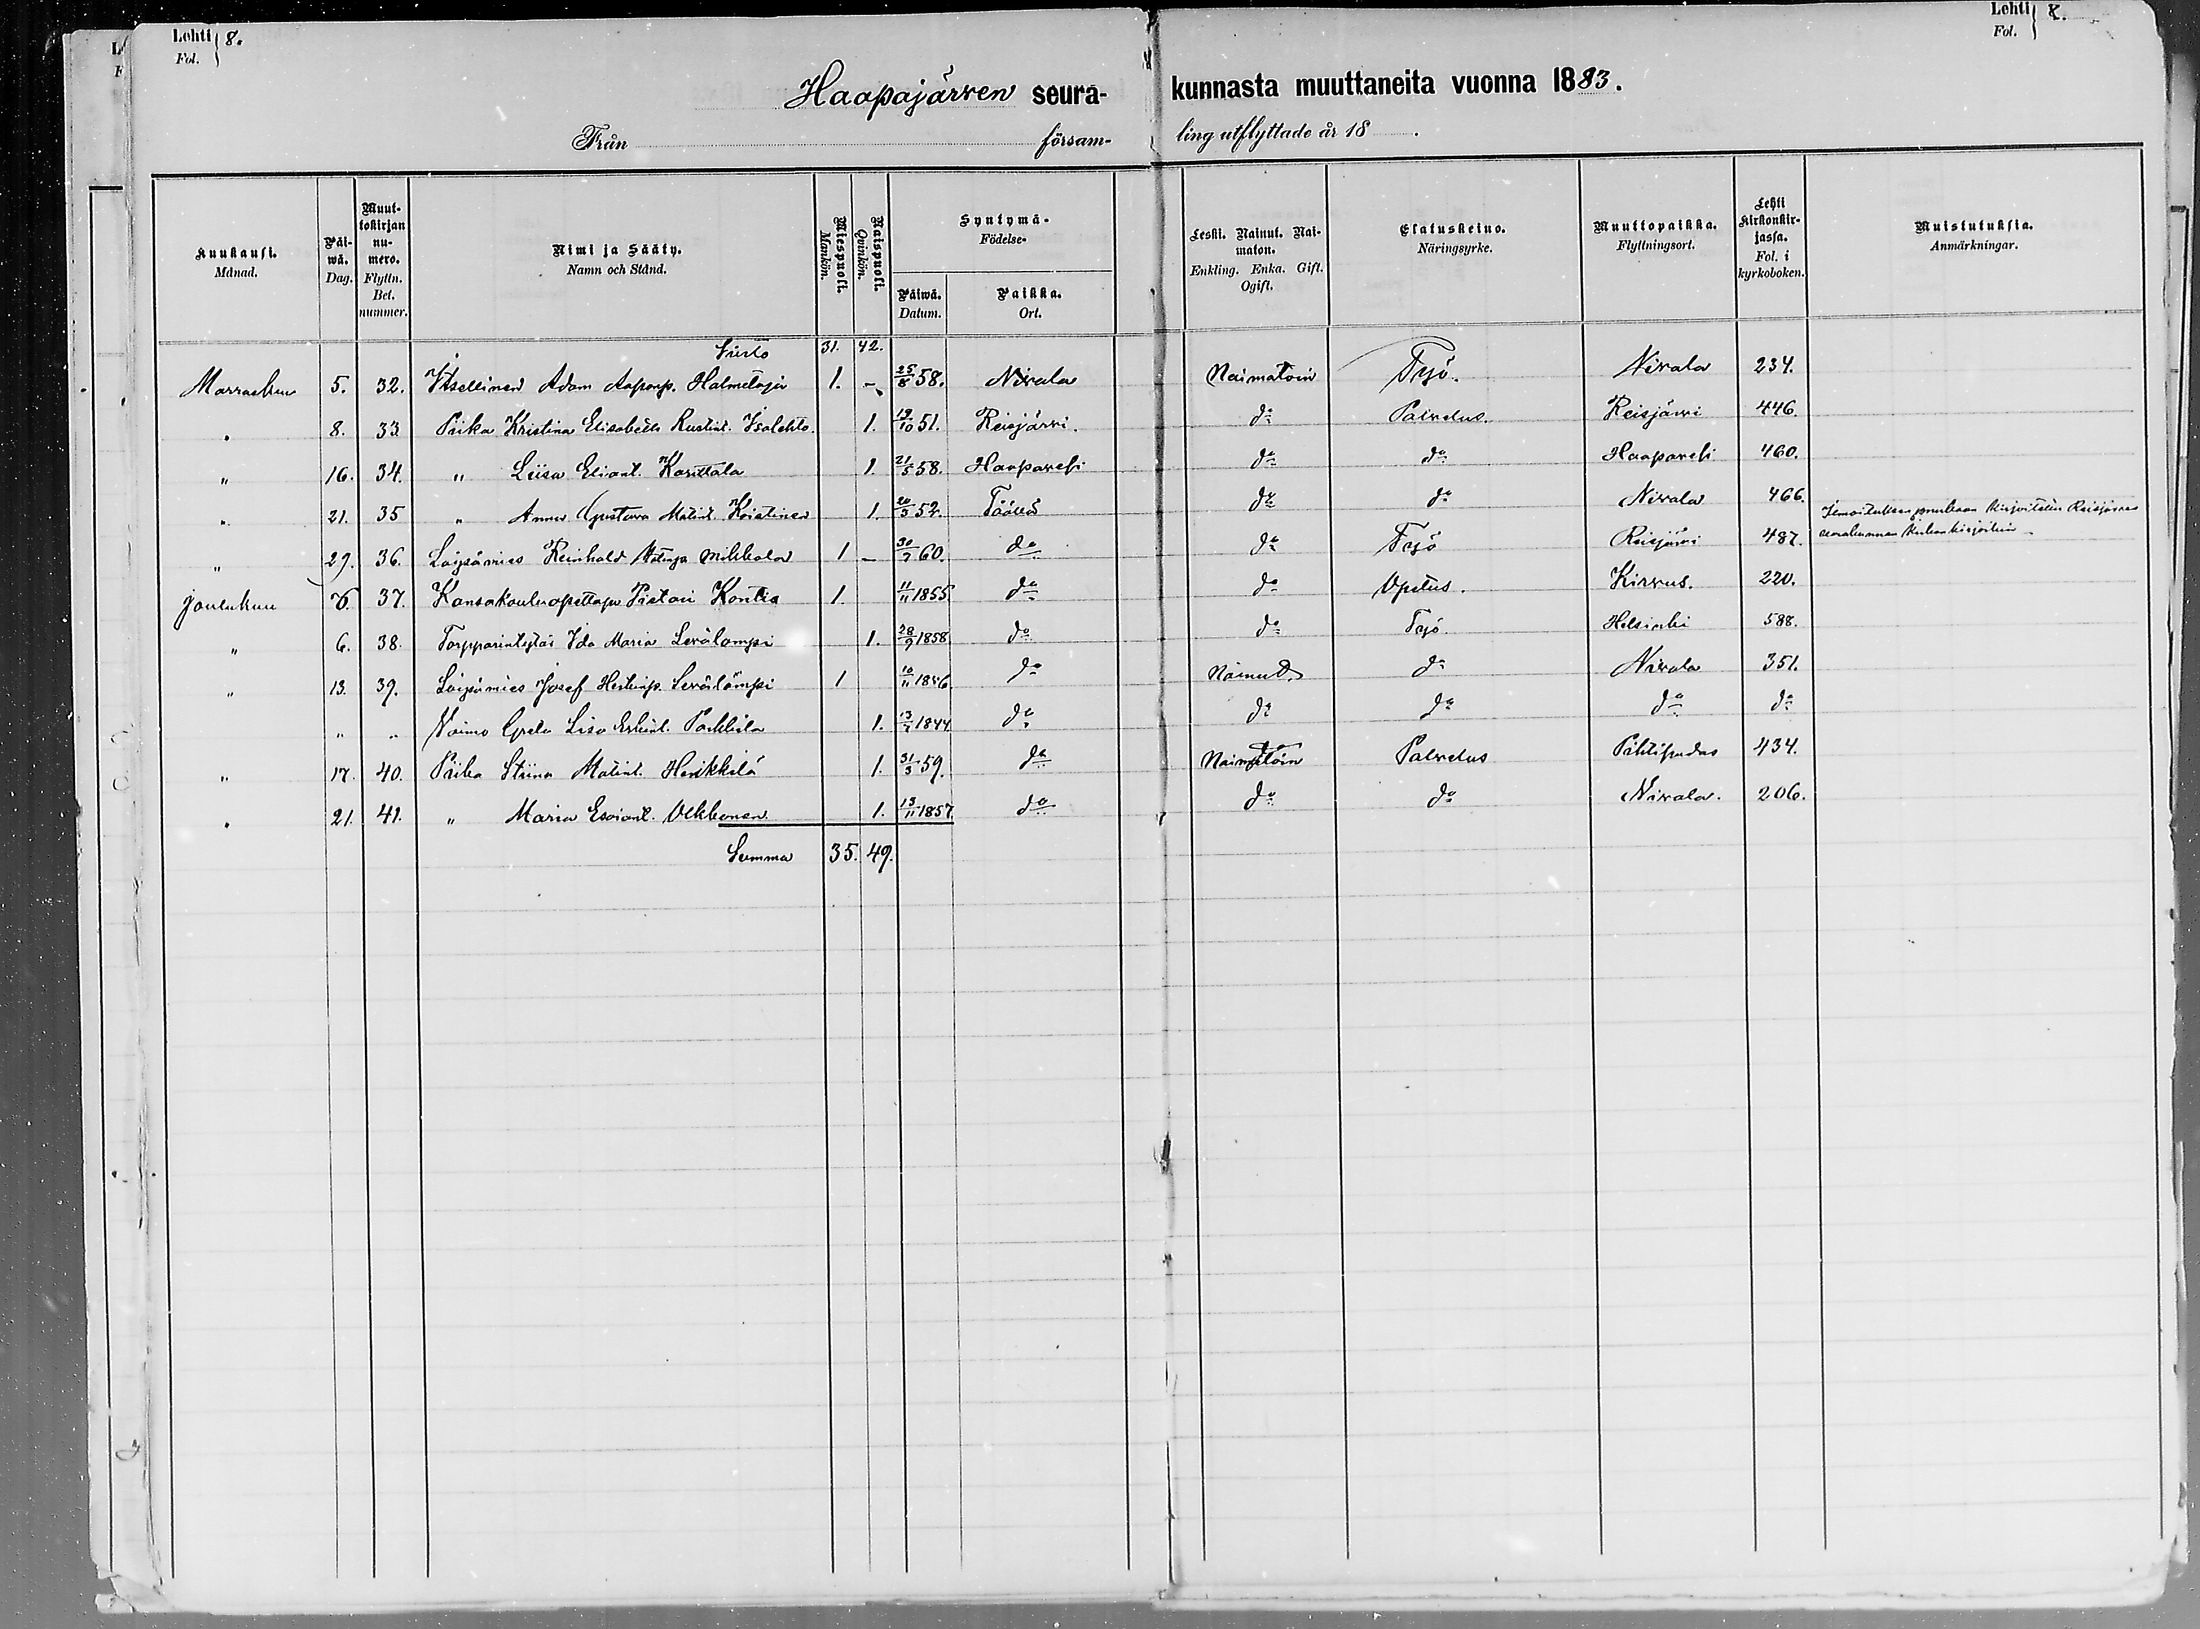 Lehti 8.
Fol.
Lehti 8.
Fol.
Haapajärven seura- kunnasta muuttaneita vuonna 1883.
Från försam- ling utflyttade år 18 .
Kuukausi. Månad. Päi-wä. Dag. Muut-tokirjan nu-mero. Flyttn. Bet. nummer. Nimi ja Sääty. Namn och Stånd. Miespuoli. Mankön. Naispuoli. Quinkön. Syntymä- Födelse- Päiwä. Datum. Paikka. Ort. Leski. Nainut. Nai-maton. Enkling. Enka. Gift. Ogift. Elatuskeino. Näringsyrke. Muuttopaikka. Flyttningsort. Lehti Kirkonkir-jassa. Fol. i kyrkoboken. Muistutuksia. Anmärkningar.
Siirto 31. 42.
Marraskuu 5. 32. Itsellinen Adam Aaponp. Halmetoja 1. - 25/8 58. Nivala Naimatoin Työ. Nivala 234.
" 8. 33 Piika Kristina Elisabeth Kustint. Isolehto. 1. 19/10 51. Reisjärvi. do Palvelus. Reisjärvi 446.
" 16. 34. " Liisa Eliant. Karittala 1. 21/5 58. Haapavesi do do Haapavesi 460.
" 21. 35 " Anna Gustava Matint. Koistinen 1. 20/3 52. Täällä do do Nivala 466.
" 29. 36. Loisämies Reinhold Matinp. Mikkola 1 - 30/7 60. do do Työ Reisjärvi 487. Ilmoituksen mukaan kirjoitettu Reisjärven seurakunnan kirkonkirjoihin
Joulukuu 6. 37. Kansakoulunopettaja Pietari Kontio 1. 11/11 1855 do do Opetus. Kirvus. 220.
" 6. 38. Torpparintytär Ida Maria Levälampi 1. 28/9 1858 do do Työ. Helsinki 588.
" 13. 39. Loisämies Josef Heikinp. Levälampi 1 10/11 1846 do Nainut. do Nivala 351.
" " " Vaimo Greta Lisa Erkint. Parkkila 1. 13/7 1844 do do do do do
" 17. 40. Piika Stiina Matint. Heikkilä 1. 31/3 59. do Naimatoin Palvelus Pihtipudas 434.
" 21. 41. " Maria Esaiant. Olkkonen 1. 13/11 1857. do do do Nivala. 206.
Summa 35. 49.